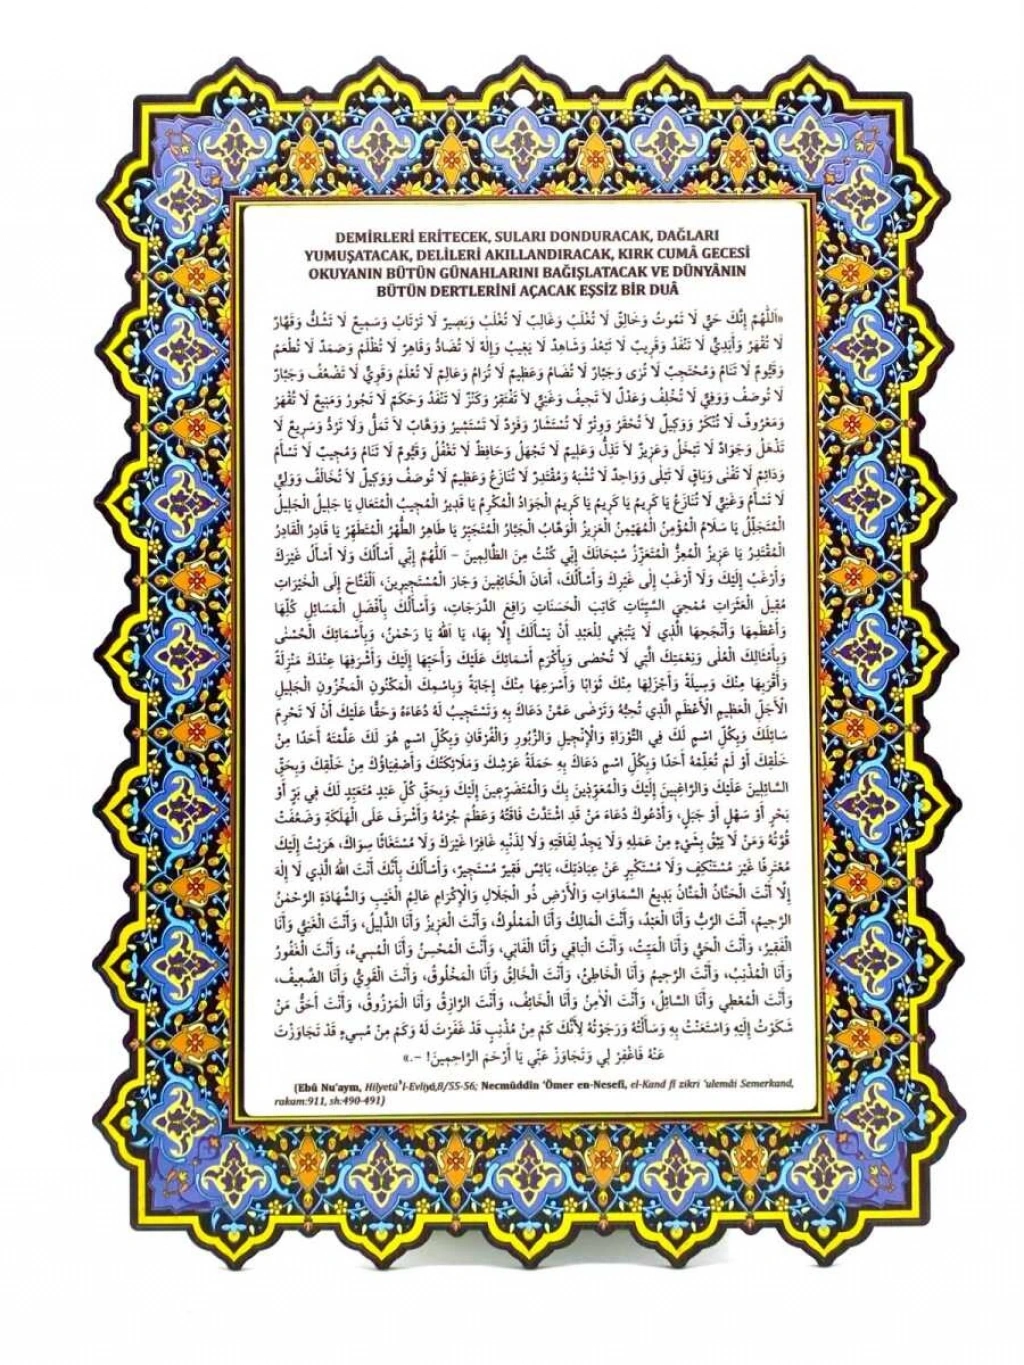 DEMİRLERİ ERİTECEK, SULARI DONDURACAK, DAĞLARI
YUMUŞATACAK, DELİLERİ AKILLANDIRACAK, KIRK CUMÂ GECESİ
OKUYANIN BÜTÜN GÜNAHLARINI BAĞIŞLATACAK VE DÜNYÂNIN
BÜTÜN DERTLERİNİ AÇACAK EŞSİZ BİR DUÂ
«اَللّٰهُمَّ إِنَّكَ حَيٌّ لَا تَمُوتُ وَخَالِقٌ لَا تُغْلَبُ وَغَالِبٌ لَا تُغْلَبُ وَبَصِيرٌ لَا تَرْتَابُ وَسَمِيعٌ لَا تَشُكُّ وَقَهَّارٌ
لَا تُقْهَرُ وَأَبَدِيٌّ لَا تَنْفَدُ وَقَرِيبٌ لَا تَبْعُدُ وَشَاهِدٌ لَا يَغِيبُ وَإِلٰهٌ لَا تُضَادُّ وَقَاهِرٌ لَا تُظْلَمُ وَصَمَدٌ لَا تُطْعَمُ
وَقَيُّومٌ لَا تَنَامُ وَمُحْتَجِبٌ لَا تُرَى وَجَبَّارٌ لَا تُضَامُ وَعَظِيمٌ لَا تُرَامُ وَعَالِمٌ لَا تُعْلَمُ وَقَوِيٌّ لَا تَضْعُفُ وَجَبَّارٌ
لَا تُوصَفُ وَوَفِيٌّ لَا تُخْلِفُ وَعَدْلٌ لَا تَحِيفُ وَغَنِيٌّ لَا تَفْتَقِرُ وَكَنْزٌ لَا تَنْفَدُ وَحَكَمٌ لَا تَجُورُ وَمَنِيعٌ لَا تُقْهَرُ
وَمَعْرُوفٌ لَا تُنْكَرُ وَوَكِيلٌ لَا تُحْقَرُ وَوِتْرٌ لَا تُسْتَشَارُ وَفَرْدٌ لَا تَسْتَشِيرُ وَوَهَّابٌ لَا تَمَلُّ وَلَا تَرُدُّ وَسَرِيعٌ لَا
تَذْهَلُ وَجَوَادٌ لَا تَبْخَلُ وَعَزِيزٌ لَا تَذِلُّ وَعَلِيمٌ لَا تَجْهَلُ وَحَافِظٌ لَا تَغْفُلُ وَقَيُّومٌ لَا تَنَامُ وَمُجِيبٌ لَا تَسْأَمُ
وَدَائِمٌ لَا تَفْنَى وَبَاقٍ لَا تَبْلَى وَوَاحِدٌ لَا تُشْبَهُ وَمُقْتَدِرٌ لَا تُنَازَعُ وَعَظِيمٌ لَا تُوصَفُ وَوَكِيلٌ لَا تُخَالَفُ وَوَلِيٌّ
لَا تَسْأَمُ وَغَنِيٌّ لَا تُنَازَعُ يَا كَرِيمُ يَا كَرِيمُ يَا كَرِيمُ الْجَوَادُ الْمُكْرِمُ يَا قَدِيرُ الْمُجِيبُ الْمُتَعَالِ يَا جَلِيلُ الْجَلِيلُ
الْمُتَجَلِّلُ يَا سَلَامُ الْمُؤْمِنُ الْمُهَيْمِنُ الْعَزِيزُ الْوَهَّابُ الْجَبَّارُ الْمُتَجَبِّرُ يَا طَاهِرُ الطُّهْرُ الْمُتَطَهِّرُ يَا قَادِرُ الْقَادِرُ
الْمُقْتَدِرُ يَا عَزِيزُ الْمُعِزُّ الْمُتَعَزِّزُ سُبْحَانَكَ إِنِّي كُنْتُ مِنَ الظَّالِمِينَ – اَللّٰهُمَّ إِنِّي أَسْأَلُكَ وَلَا أَسْأَلُ غَيْرَكَ
وَأَرْغَبُ إِلَيْكَ وَلَا أَرْغَبُ إِلَى غَيْرِكَ وَأَسْأَلُكَ، أَمَانَ الْخَائِفِينَ وَجَارَ الْمُسْتَجِيرِينَ، اَلْفَتَّاحَ إِلَى الْخَيْرَاتِ
مُقِيلَ الْعَثَرَاتِ مُمْحِيَ السَّيِّئَاتِ كَاتِبَ الْحَسَنَاتِ رَافِعَ الدَّرَجَاتِ، وَأَسْأَلُكَ بِأَفْضَلِ الْمَسَائِلِ كُلِّهَا
وَأَعْظَمِهَا وَأَنْجَحِهَا الَّذِي لَا يَنْبَغِي لِلْعَبْدِ أَنْ يَسْأَلَكَ إِلَّا بِهَا، يَا اَللهُ يَا رَحْمٰنُ، وَبِأَسْمَائِكَ الْحُسْنَى
وَبِأَمْثَالِكَ الْعُلْيَا وَبِنِعْمَتِكَ الَّتِي لَا تُحْصَى وَبِأَكْرَمِ أَسْمَائِكَ عَلَيْكَ وَأَحَبِّهَا إِلَيْكَ وَأَشْرَفِهَا عِنْدَكَ مَنْزِلَةً
وَأَقْرَبِهَا مِنْكَ وَسِيلَةً وَأَجْزَلِهَا مِنْكَ ثَوَابًا وَأَسْرَعِهَا مِنْكَ إِجَابَةً وَبِاسْمِكَ الْمَكْنُونِ الْمَخْزُونِ الْجَلِيلِ
الْأَجَلِّ الْعَظِيمِ الْأَعْظَمِ الَّذِي تُحِبُّهُ وَتَرْضَى عَمَّنْ دَعَاكَ بِهِ وَتَسْتَجِيبُ لَهُ دُعَاءَهُ وَحَقًّا عَلَيْكَ أَنْ لَا تَحْرِمَ
سَائِلَكَ وَبِكُلِّ اسْمٍ لَكَ فِي التَّوْرَاةِ وَالْإِنْجِيلِ وَالزَّبُورِ وَالْفُرْقَانِ وَبِكُلِّ اسْمٍ هُوَ لَكَ عَلَّمْتَهُ أَحَدًا مِنْ
خَلْقِكَ أَوْ لَمْ تُعَلِّمْهُ أَحَدًا وَبِكُلِّ اسْمٍ دَعَاكَ بِهِ حَمَلَةُ عَرْشِكَ وَمَلَائِكَتُكَ وَأَصْفِيَاؤُكَ مِنْ خَلْقِكَ وَبِحَقِّ
السَّائِلِينَ عَلَيْكَ وَالرَّاغِبِينَ إِلَيْكَ وَالْمُعَوِّذِينَ بِكَ وَالْمُتَضَرِّعِينَ إِلَيْكَ وَبِحَقِّ كُلِّ عَبْدٍ مُتَعَبِّدٍ لَكَ فِي بَرٍّ أَوْ
بَحْرٍ أَوْ سَهْلٍ أَوْ جَبَلٍ، وَأَدْعُوكَ دُعَاءَ مَنْ قَدِ اشْتَدَّتْ فَاقَتُهُ وَعَظُمَ جُرْمُهُ وَأَشْرَفَ عَلَى الْهَلَكَةِ وَضَعُفَتْ
قُوَّتُهُ وَمَنْ لَا يَثِقُ بِشَيْءٍ مِنْ عَمَلِهِ وَلَا يَجِدُ لِفَاقَتِهِ وَلَا لِذَنْبِهِ غَافِرًا غَيْرَكَ وَلَا مُسْتَغَاثًا سِوَاكَ، هَرَبْتُ إِلَيْكَ
مُعْتَرِفًا غَيْرَ مُسْتَنْكِفٍ وَلَا مُسْتَكْبِرٍ عَنْ عِبَادَتِكَ، بَائِسٌ فَقِيرٌ مُسْتَجِيرٌ، وَأَسْأَلُكَ بِأَنَّكَ أَنْتَ اللهُ الَّذِي لَا إِلٰهَ
إِلَّا أَنْتَ الْحَنَّانُ الْمَنَّانُ بَدِيعُ السَّمَاوَاتِ وَالْأَرْضِ ذُو الْجَلَالِ وَالْإِكْرَامِ عَالِمُ الْغَيْبِ وَالشَّهَادَةِ الرَّحْمٰنُ
الرَّحِيمُ، أَنْتَ الرَّبُّ وَأَنَا الْعَبْدُ، وَأَنْتَ الْمَالِكُ وَأَنَا الْمَمْلُوكُ، وَأَنْتَ الْعَزِيزُ وَأَنَا الذَّلِيلُ، وَأَنْتَ الْغَنِيُّ وَأَنَا
الْفَقِيرُ، وَأَنْتَ الْحَيُّ وَأَنَا الْمَيِّتُ، وَأَنْتَ الْبَاقِي وَأَنَا الْفَانِي، وَأَنْتَ الْمُحْسِنُ وَأَنَا الْمُسِيءُ، وَأَنْتَ الْغَفُورُ
وَأَنَا الْمُذْنِبُ، وَأَنْتَ الرَّحِيمُ وَأَنَا الْخَاطِئُ، وَأَنْتَ الْخَالِقُ وَأَنَا الْمَخْلُوقُ، وَأَنْتَ الْقَوِيُّ وَأَنَا الضَّعِيفُ،
وَأَنْتَ الْمُعْطِي وَأَنَا السَّائِلُ، وَأَنْتَ الْأَمِنُ وَأَنَا الْخَائِفُ، وَأَنْتَ الرَّازِقُ وَأَنَا الْمَرْزُوقُ، وَأَنْتَ أَحَقُّ مَنْ
شَكَوْتُ إِلَيْهِ وَاسْتَعَنْتُ بِهِ وَسَأَلْتُهُ وَرَجَوْتُهُ لِأَنَّكَ كَمْ مِنْ مُذْنِبٍ قَدْ غَفَرْتَ لَهُ وَكَمْ مِنْ مُسِيءٍ قَدْ تَجَاوَزْتَ
عَنْهُ فَاغْفِرْ لِي وَتَجَاوَزْ عَنِّي يَا أَرْحَمَ الرَّاحِمِينَ! –.»
(Ebû Nu'aym, Hilyetü'l-Evliyâ,8/55-56; Necmüddîn 'Ömer en-Nesefî, el-Kand fî zikri 'ulemâi Semerkand,
rakam:911, sh:490-491)